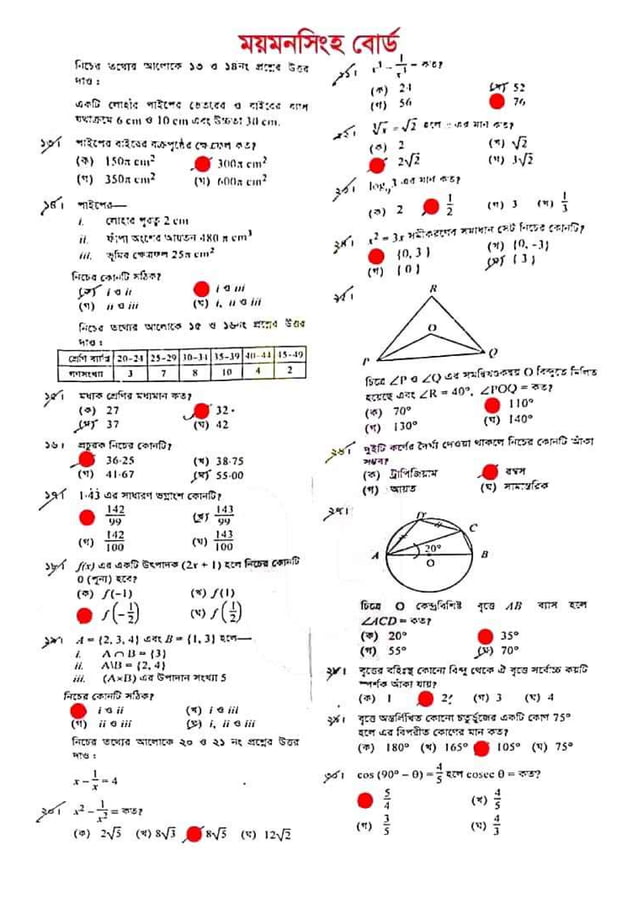 ময়মনসিংহ বোর্ড
নিচের তথ্যের আলোকে ১৩ ও ১৪নং প্রশ্নের উত্তর
দাও :
একটি লোহার পাইপের ভেতরের ও বাইরের ব্যাস
যথাক্রমে 6 cm ও 10 cm এবং উচ্চতা 30 cm.
১৩। পাইপের বাইরের বক্রপৃষ্ঠের ক্ষেত্রফল কত?
(ক) 150π cm² 300π cm²
(গ) 350π cm² (ঘ) 600π cm²
১৪। পাইপের—
i. লোহার পুরুত্ব 2 cm
ii. ফাঁপা অংশের আয়তন 480 π cm³
iii. ভূমির ক্ষেত্রফল 25π cm²
নিচের কোনটি সঠিক?
(ক) i ও ii i ও iii
(গ) ii ও iii (ঘ) i, ii ও iii
নিচের তথ্যের আলোকে ১৫ ও ১৬নং প্রশ্নের উত্তর
দাও :
শ্রেণি ব্যাপ্তি 20-24 25-29 30-34 35-39 40-44 45-49
গণসংখ্যা 3 7 8 10 4 2
১৫। মধ্যক শ্রেণির মধ্যমান কত?
(ক) 27 32
(গ) 37 (ঘ) 42
১৬। প্রচুরক নিচের কোনটি?
36·25 (খ) 38·75
(গ) 41·67 (ঘ) 55·00
১৭। 1·4̇3̇ এর সাধারণ ভগ্নাংশ কোনটি?
142/99 (খ) 143/99
(গ) 142/100 (ঘ) 143/100
১৮। f(x) এর একটি উৎপাদক (2x + 1) হলে নিচের কোনটি
0 (শূন্য) হবে?
(ক) f(−1) (খ) f(1)
f(−1/2) (ঘ) f(1/2)
১৯। A = {2, 3, 4} এবং B = {1, 3} হলে—
i. A ∩ B = {3}
ii. A\B = {2, 4}
iii. (A×B) এর উপাদান সংখ্যা 5
নিচের কোনটি সঠিক?
i ও ii (খ) i ও iii
(গ) ii ও iii (ঘ) i, ii ও iii
নিচের তথ্যের আলোকে ২০ ও ২১ নং প্রশ্নের উত্তর
দাও :
x − 1/x = 4
২০। x² − 1/x² = কত?
(ক) 2√5 (খ) 8√3 8√5 (ঘ) 12√2
২১। x³ − 1/x³ = কত?
(ক) 24 (খ) 52
(গ) 56 76
২২। = √2 হলে এর মান কত?
(ক) 2 (খ) √2
2√2 (ঘ) 3√2
২৩। log₉3 এর মান কত?
(ক) 2 1/2 (গ) 3 (ঘ) 1/3
২৪। x² = 3x সমীকরণের সমাধান সেট নিচের কোনটি?
{0, 3} (খ) {0, -3}
(গ) {0} (ঘ) {3}
২৫।
R
O
P Q
চিত্রে ∠P ও ∠Q এর সমদ্বিখণ্ডকদ্বয় O বিন্দুতে মিলিত
হয়েছে এবং ∠R = 40°, ∠POQ = কত?
(ক) 70° 110°
(গ) 130° (ঘ) 140°
২৬। দুইটি কর্ণের দৈর্ঘ্য দেওয়া থাকলে নিচের কোনটি আঁকা
সম্ভব?
(ক) ট্রাপিজিয়াম রম্বস
(গ) আয়ত (ঘ) সামান্তরিক
২৭।
D
C
A 20° B
O
চিত্রে O কেন্দ্রবিশিষ্ট বৃত্তে AB ব্যাস হলে
∠ACD = কত?
(ক) 20° 35°
(গ) 55° (ঘ) 70°
২৮। বৃত্তের বহিঃস্থ কোনো বিন্দু থেকে ঐ বৃত্তে সর্বোচ্চ কয়টি
স্পর্শক আঁকা যায়?
(ক) 1 2 (গ) 3 (ঘ) 4
২৯। বৃত্তে অন্তর্লিখিত কোনো চতুর্ভুজের একটি কোণ 75°
হলে এর বিপরীত কোণের মান কত?
(ক) 180° (খ) 165° 105° (ঘ) 75°
৩০। cos (90° − θ) = 4/5 হলে cosec θ = কত?
5/4 (খ) 4/5
(গ) 3/5 (ঘ) 4/3